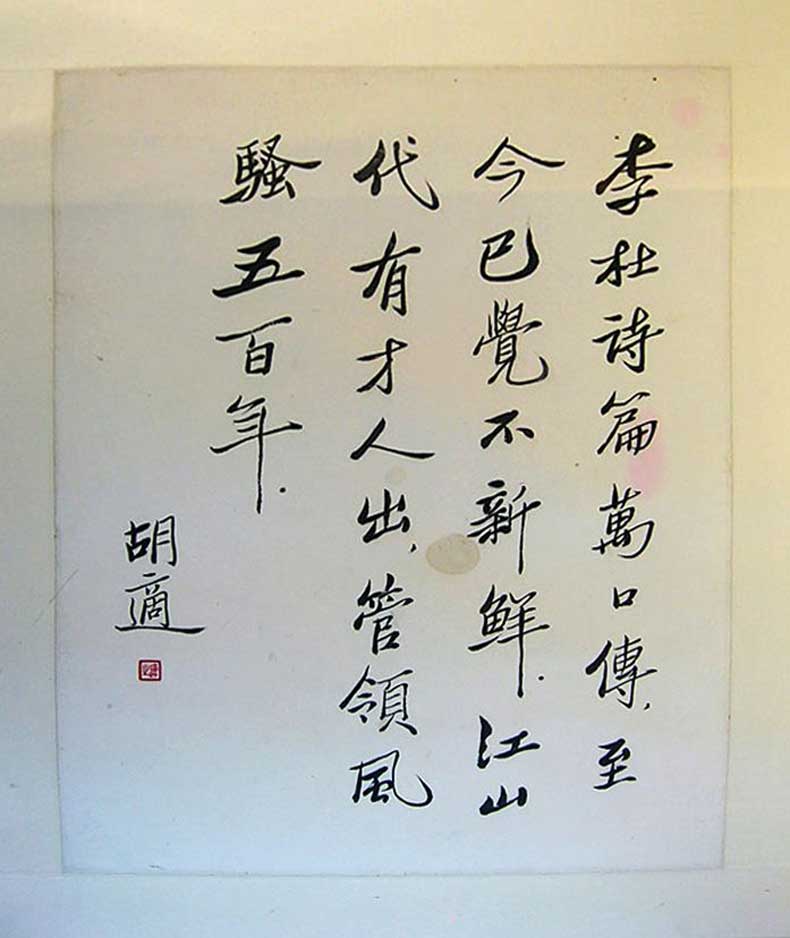 李杜诗篇萬口傳,至
今已覺不新鮮.江山
代有才人出,管領風
騷五百年.
胡適